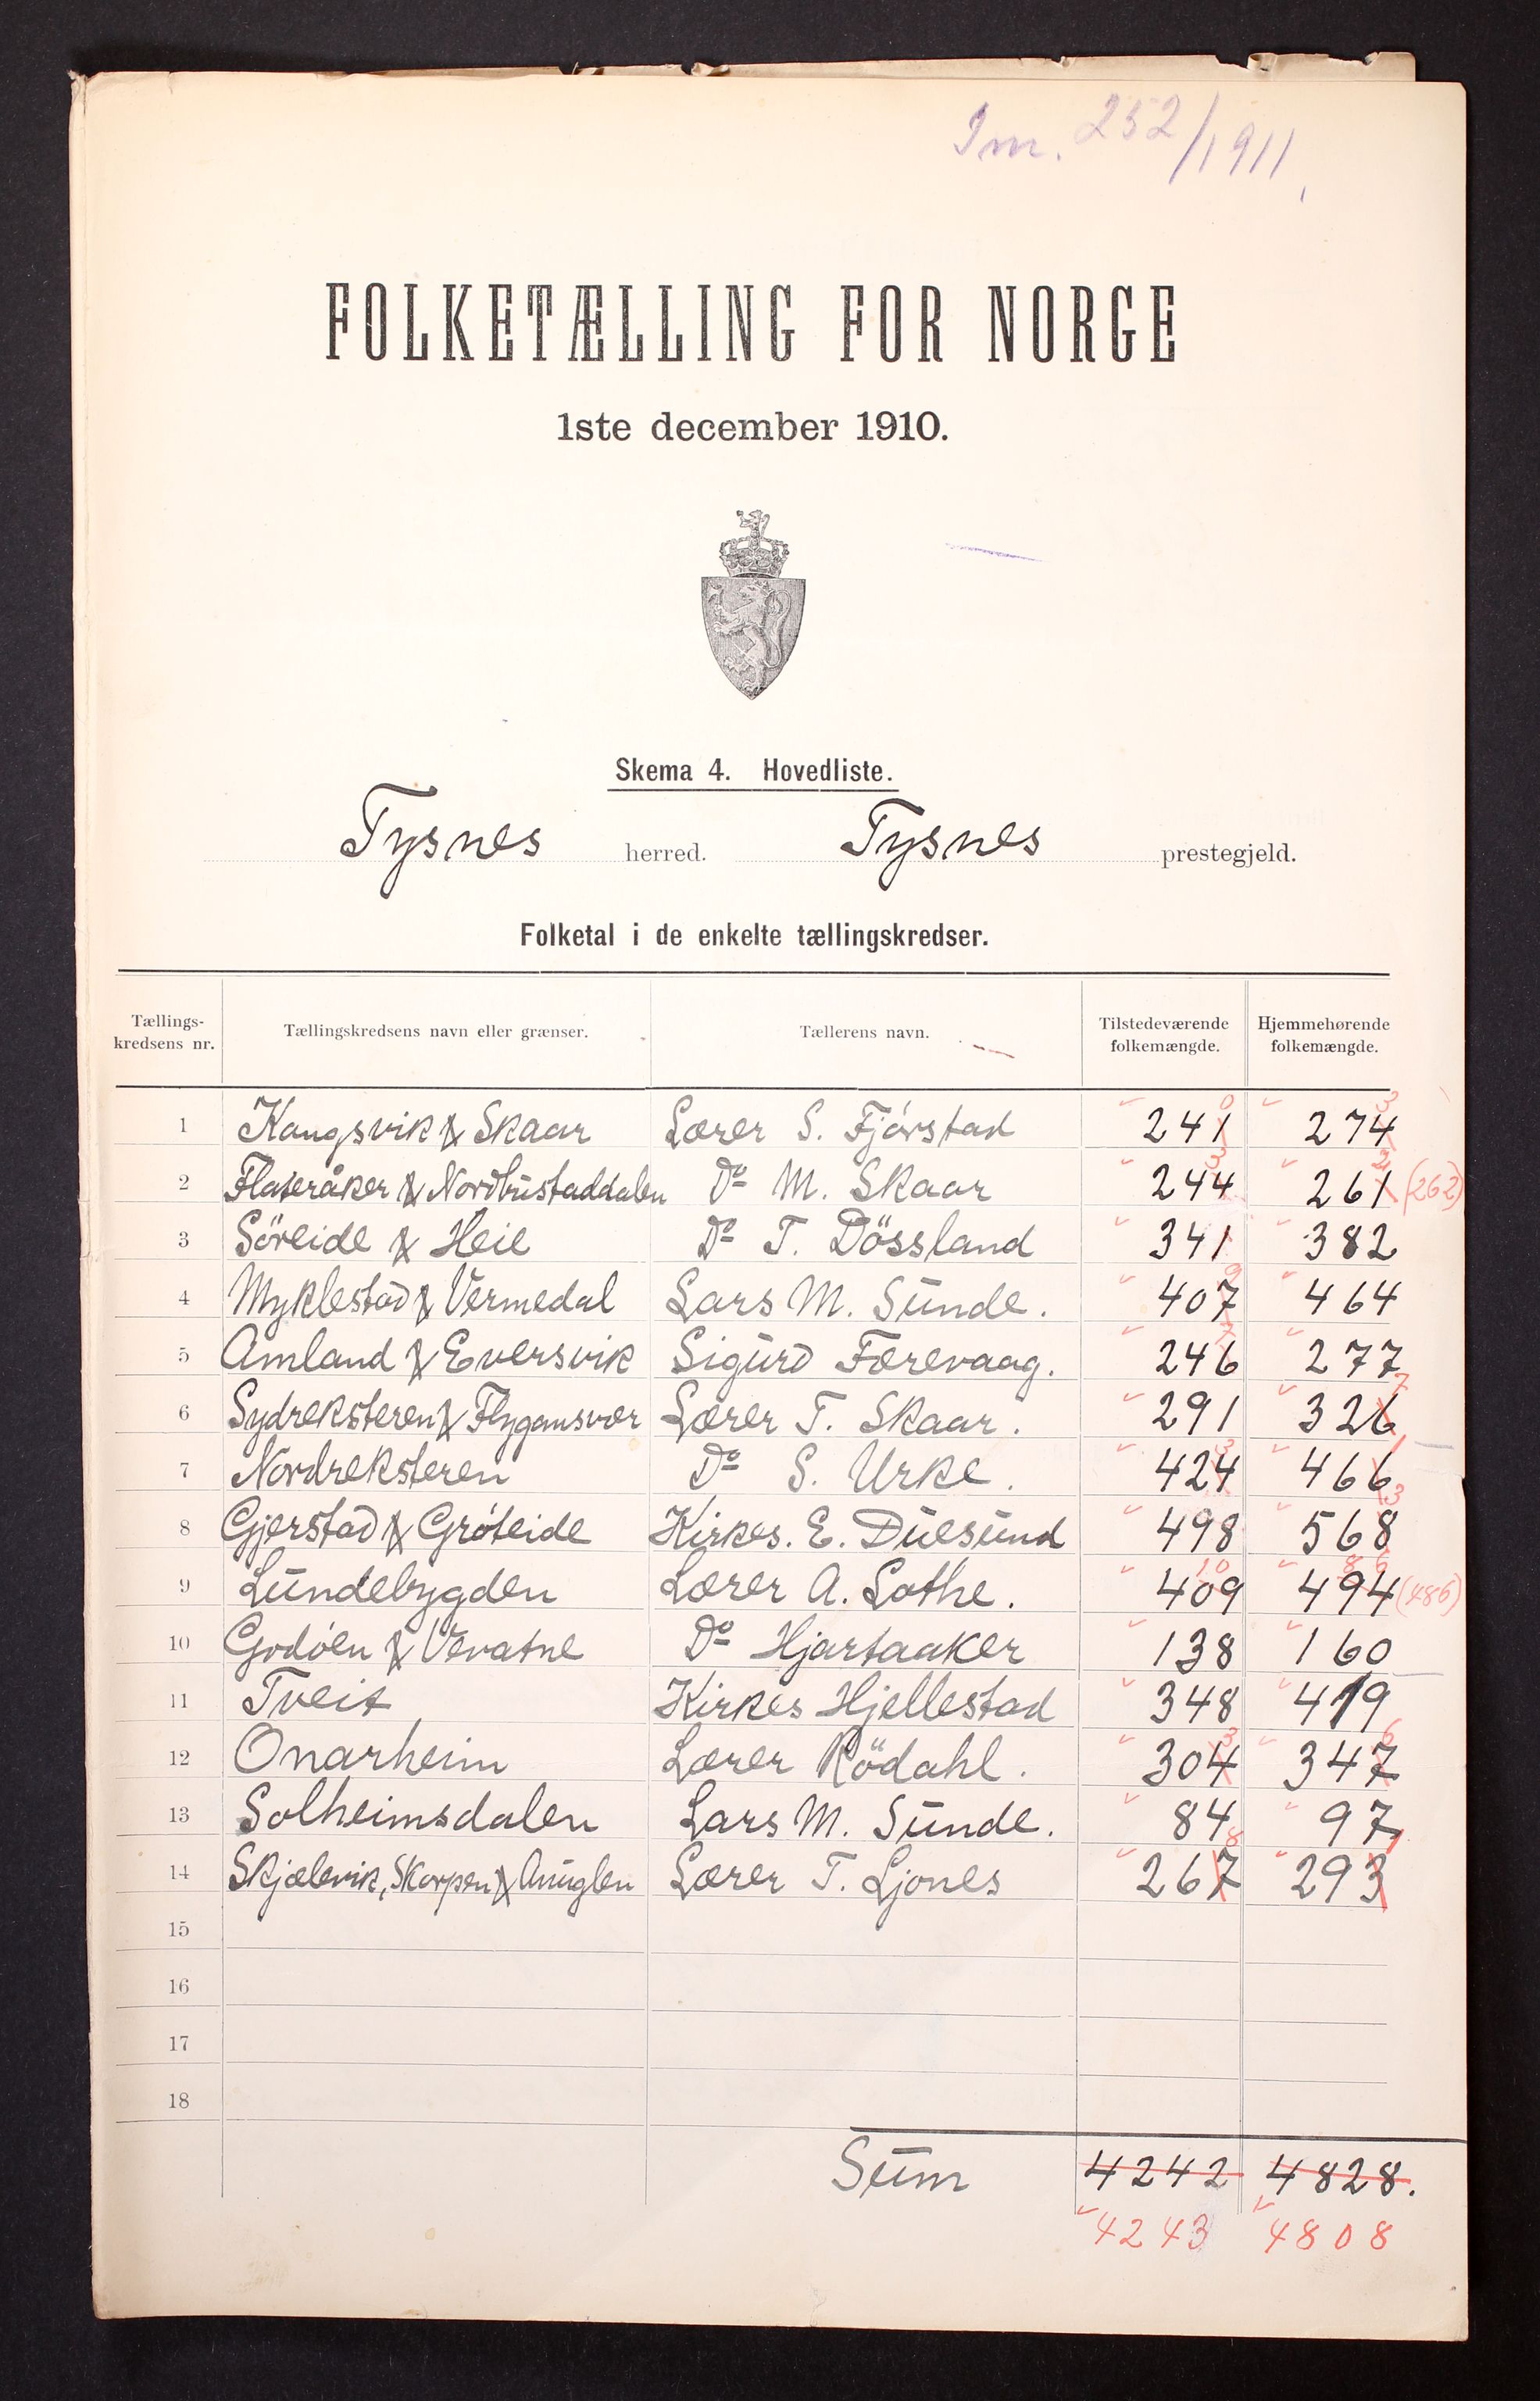 Jm. 252/1911.
FOLKETÆLLING FOR NORGE
1ste december 1910.
Skema 4. Hovedliste.
Tysnes herred. Tysnes prestegjeld.
Folketal i de enkelte tællingskredser.
Tællings-kredsens nr. Tællingskredsens navn eller grænser. Tællerens navn. Tilstedeværende folkemængde. Hjemmehørende folkemængde.
1 Kaugsvik & Skaar Lærer S. Fjørstad 241 0 274 3
2 Flateråker & Nordbustaddalen Do M. Skaar 244 3 261 2 (262)
3 Söreide & Heie Do T. Dössland 341 382
4 Myklestad & Vermedal Lars M. Sunde. 407 9 464
5 Amland & Eversvik Sigurd Færevaag. 246 7 277
6 Sydreksteren & Flygansvær Lærer T. Skaar. 291 326 7
7 Nordreksteren Do S. Urke. 424 3 466 1
8 Gjerstad & Grøteide Kirkes. E. Duesund 498 568 3
9 Lundebygden Lærer A. Lothe. 409 10 494 8 6 (486)
10 Godøen & Vevatne Do Hjartaaker 138 160
11 Tveit Kirkes Hjellestad 348 419
12 Onarheim Lærer Rödahl. 304 3 347 6
13 Solheimsdalen Lars M. Sunde. 84 97
14 Skjælevik, Skorpen & Anuglen Lærer T. Ljones 267 8 293 1
15
16
17
18
Sum 4242 4828.
4243 4808